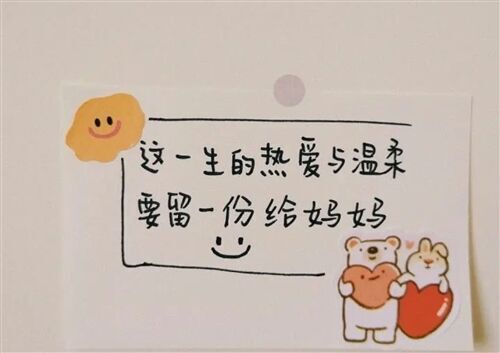 这一生的热爱与温柔
要留一份给妈妈